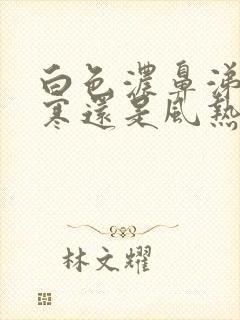 白色濃鼻涕
寒還是風熱
林文耀